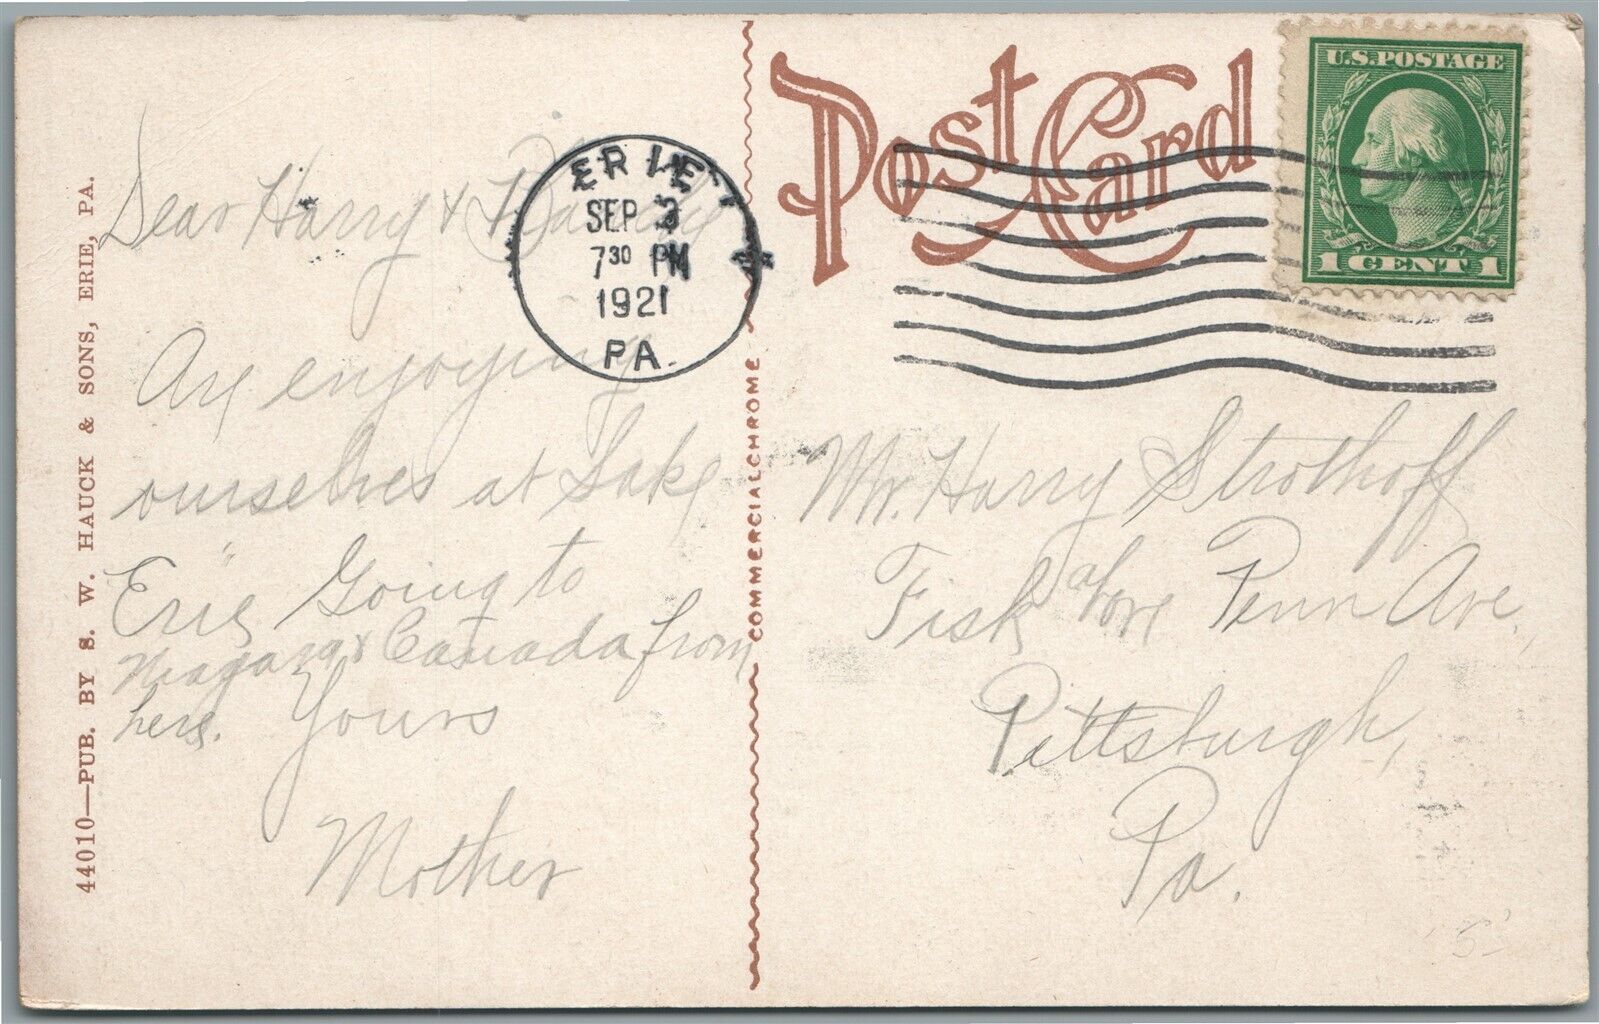 44010—PUB. BY S. W. HAUCK & SONS, ERIE, PA.
Dear Harry &
Are enjoying
ourselves at Lake
Erie, Going to
Niagara & Canada from
here. Yours
Mother
ERIE
SEP 3
7 30 PM
1921
PA.
COMMERCIALCHROME
Post Card
U.S. POSTAGE
1 CENT 1
Mr. Harry Strothoff
Fisk above Penn Ave,
Pittsburgh,
Pa.